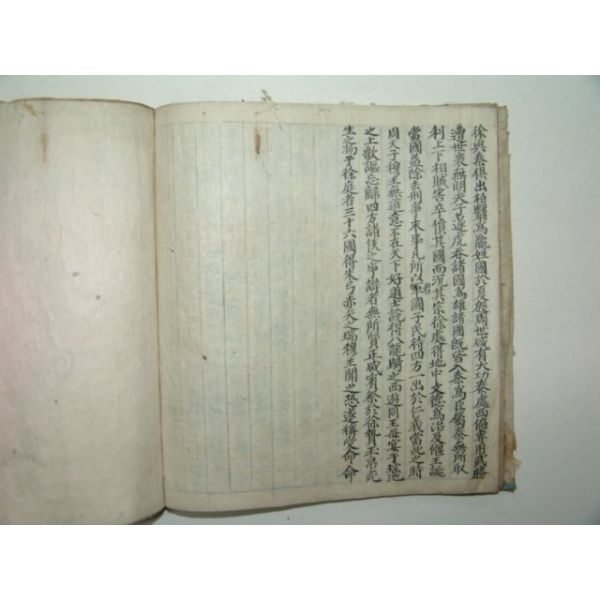 徐與秦俱出柏翳爲嬴姓國於夏殷周世咸有大功秦處西偏專用武勝
遭世衰無明天子遂虎吞諸國爲雄諸國旣皆入秦爲臣屬秦無所取
利上下相賊害卒僨其國而沉其宗徐處得地中文德爲治及偃王誕
當國益除去刑爭末事凡所以君國子民待四方一出於仁義當此之時
周天子穆王無道意不在天下好道士說得八龍騎之西遊同王母宴于瑤池
之上歌謳忘歸四方諸侯之爭辯者無所質正咸賓祭於徐贄玉帛死
生之物于徐庭者三十六國得朱弓赤矢之瑞穆王聞之恐遂稱受命命